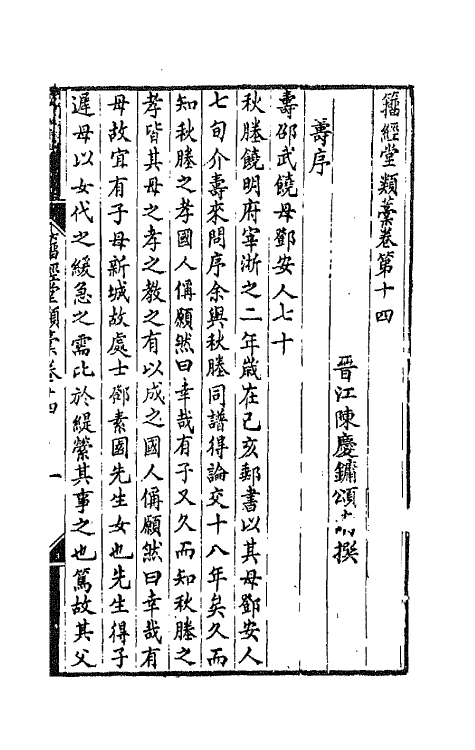 籀經堂類藁卷第十四
晉江陳慶鏞頌南撰
壽序
壽邵武饒母鄧安人七十
秋塍饒明府宰浙之二年歲在己亥郵書以其母鄧安人
七旬介壽來問序余與秋塍同譜得論交十八年矣久而
知秋塍之孝國人偁願然曰幸哉有子又久而知秋塍之
孝皆其母之孝之教之有以成之國人偁願然曰幸哉有
母故宜有子母新城故處士鄧素園先生女也先生得子
遲母以女代之緩急之需比於緹縈其事之也篤故其父
籀經堂類藁卷十四
一